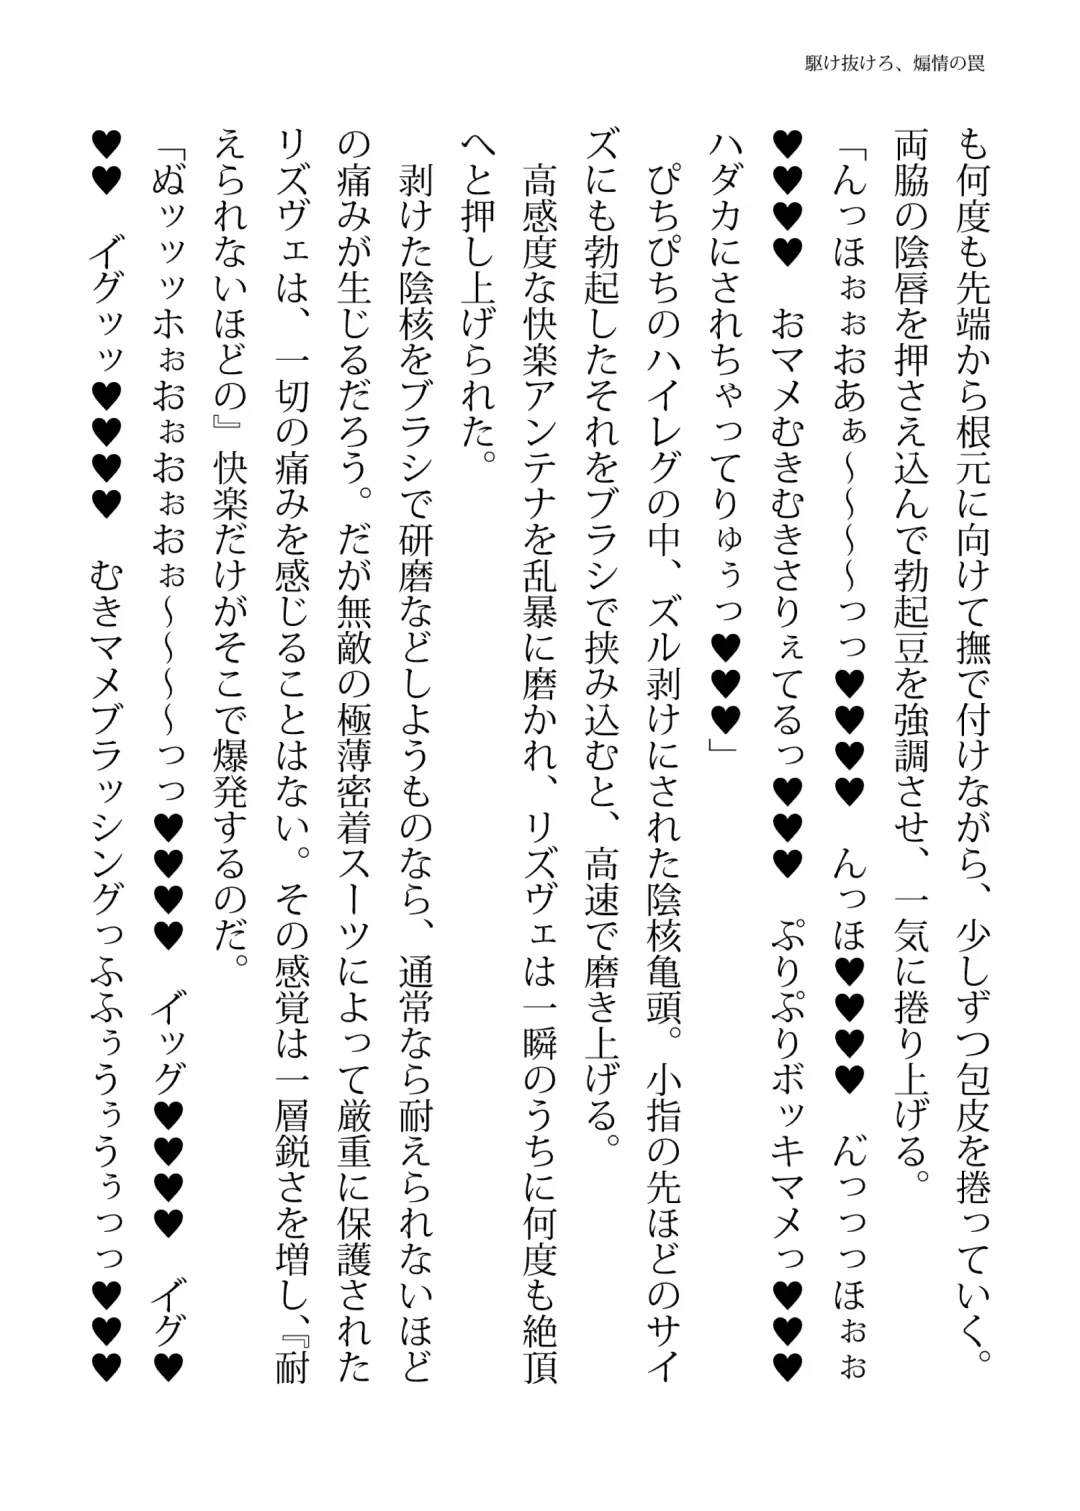 駆け抜けろ、煽情の罠
も何度も先端から根元に向けて撫で付けながら、少しずつ包皮を捲っていく。
両脇の陰唇を押さえ込んで勃起豆を強調させ、一気に捲り上げる。
「んっほぉぉおあぁ～～～～っっ♥♥♥♥　んっほ♥♥♥♥　ん゛っっっほぉぉ
♥♥♥♥　おマメむきむきさりぇてるっ♥♥♥　ぷりぷりボッキマメっ♥♥♥
ハダカにされちゃってりゅぅっ♥♥♥」
　ぴちぴちのハイレグの中、ズル剥けにされた陰核亀頭。小指の先ほどのサイ
ズにも勃起したそれをブラシで挟み込むと、高速で磨き上げる。
　高感度な快楽アンテナを乱暴に磨かれ、リズヴェは一瞬のうちに何度も絶頂
へと押し上げられた。
　剥けた陰核をブラシで研磨などしようものなら、通常なら耐えられないほど
の痛みが生じるだろう。だが無敵の極薄密着スーツによって厳重に保護された
リズヴェは、一切の痛みを感じることはない。その感覚は一層鋭さを増し、『耐
えられないほどの』快楽だけがそこで爆発するのだ。
「ぬ゛ッッッホぉおぉおぉおぉ～～～～っっ♥♥♥♥　イ゛ッグ♥♥♥♥　イ゛グ♥
♥♥　イ゛グッッ♥♥♥♥　むきマメブラッシングっふふぅうぅうぅっっ♥♥♥